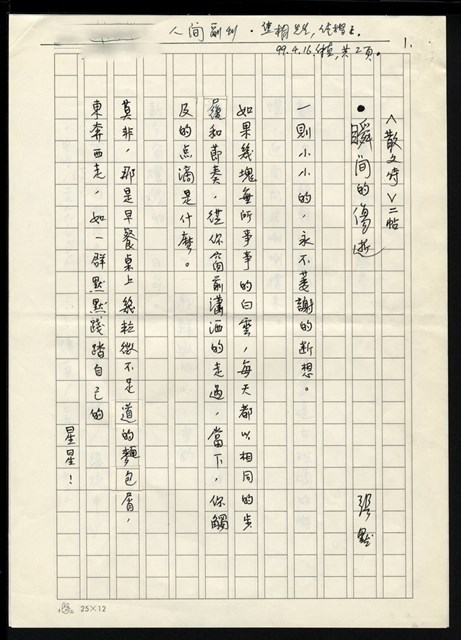 人间副刊・焦桐先生，
99.4.16.傳真，共2页。
1.
〈散文詩〉二帖
●瞬间的傷逝
張默
一則小小的，永不萎謝的断想。
如果幾塊無所事事的白雲，每天都以相同的步
履和節奏，從你窗前瀟洒的走過，當下，你觸
及的点滴是什麼。
莫非，那是早餐桌上幾粒微不足道的麵包屑，
東奔西走，如一群默默踐踏自己的
星星！
25×12